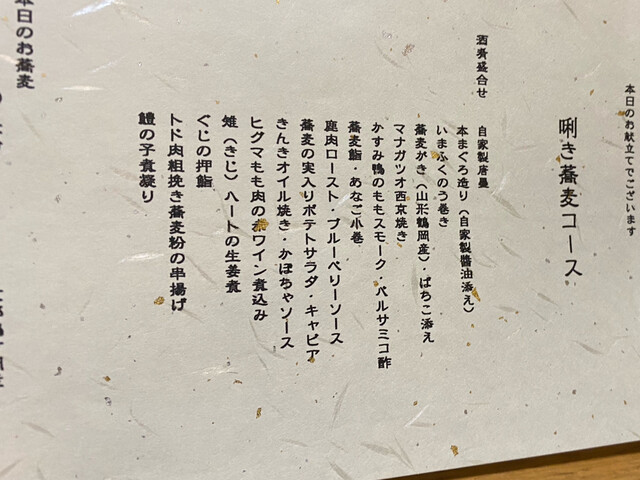 本日のお献立でございます
唎き蕎麦コース
酒肴盛合せ 自家製唐墨
本まぐろ造り（自家製醤油添え）
いまふくのう巻き
蕎麦がき（山形鶴岡産）・ばちこ添え
マナガツオ西京焼き
かすみ鴨のももスモーク・バルサミコ酢
蕎麦鮨・あなご小巻
鹿肉ロースト・ブルーベリーソース
蕎麦の実入りポテトサラダ・キャビア
きんきオイル焼き・かぼちゃソース
ヒグマもも肉の赤ワイン煮込み
雉（きじ）ハートの生姜煮
ぐじの押鮨
トド肉粗挽き蕎麦粉の串揚げ
鱧の子煮凝り
本日のお蕎麦